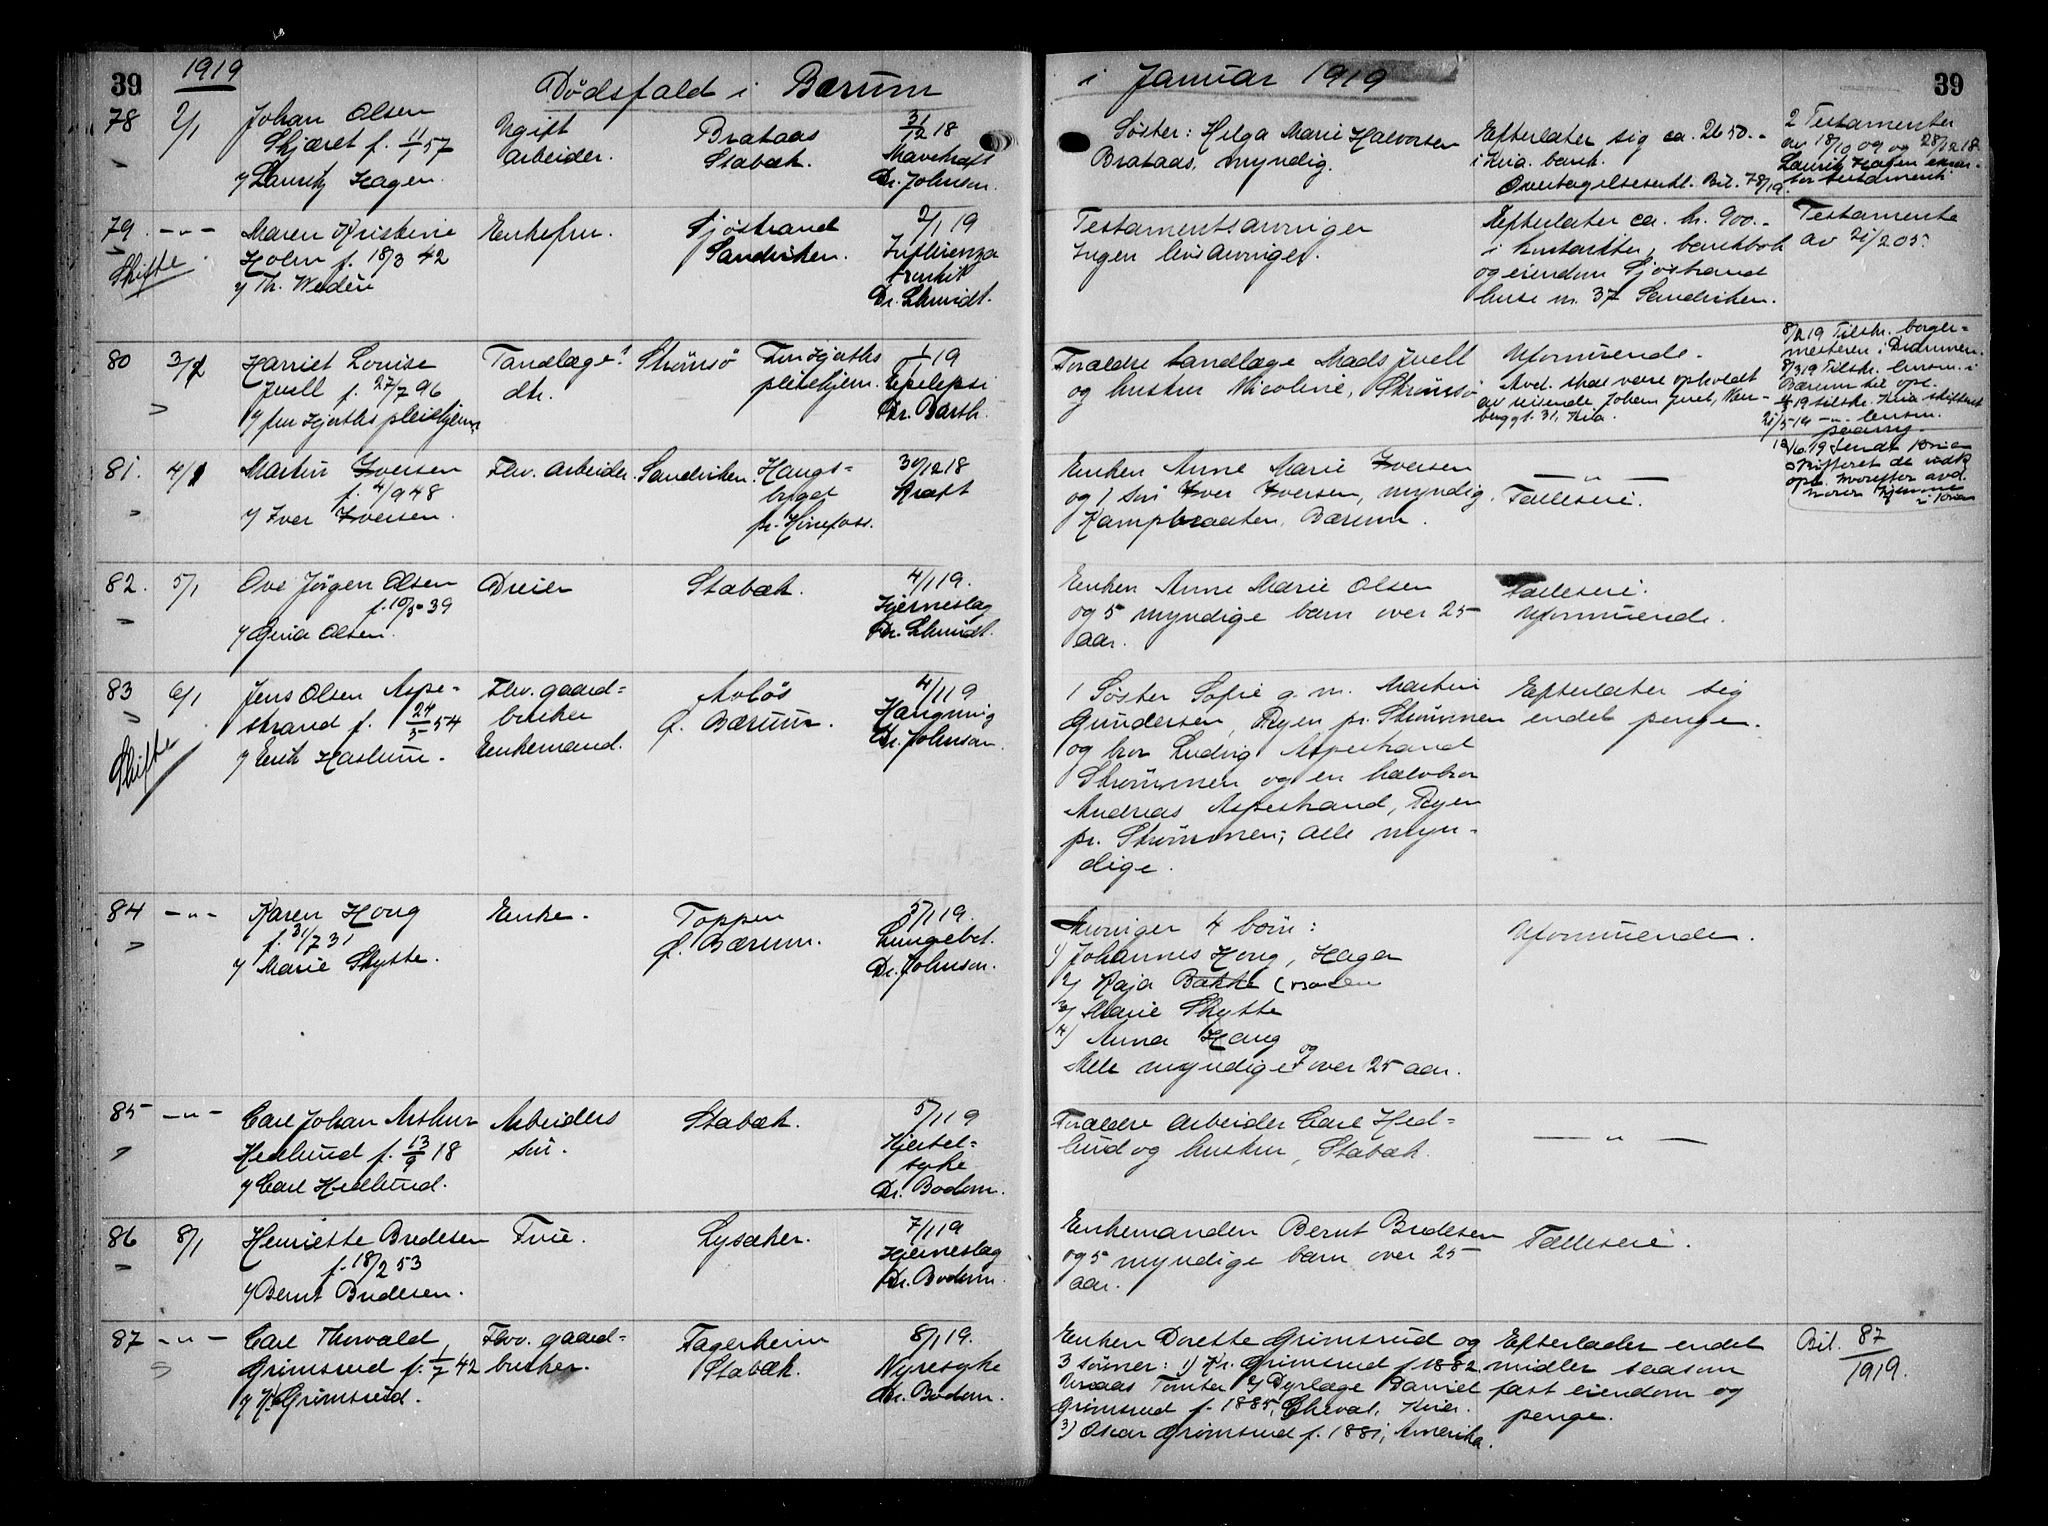 39
1919
Dødsfald i Bærum
i Januar 1919
39
78 2/1 Johan Olsen
Skjæret f. 11/1 57
v/ Lauritz Hagen.
Ugift
arbeider.
Brataas
Stabæk.
31/12 18
Mavekræft
Dr. Johnson.
Søster: Helga Marie Halvorsen
Brataas, myndig.
Efterlater sig ca. 2650.-
i Kria. bank.
Overtagelseserkl. Bil. 78/19.
2 Testamenter
av 18/10 09 og 28/12 18.
Lauritz Hagen
testament
79. -"- Maren Kristine
Holm f. 18/3 42
v/ Th. Wedén
Skifte
Enkefru.
Sjøstrand
Sandviken.
2/1 19
Influenza
bronkit
Dr. Schmidt.
Testamentsarvinger
Ingen livsarvinger.
Efterlater ca. kr. 900.-
i kontanter, bankbok
og eiendom Sjøstrand
huse nr. 37 Sandviken.
Testamente
av 21/2 05.
80 3/1 Harriet Louise
Juell f. 27/7 96
v/ fru Hjorths pleiehjem.
Tandlæge-
dtr.
Strømsø
Fru Hjorths
pleiehjem.
1/1 19
Epilepsi
Dr. Barth.
Forældre tandlæge Mads Juell
og hustru Nicoline, Strømsø
Uformuende.
Avd. skal være opholdt
av reisende Johan Juel,
berggt. 31, Kria.
8/2 19 Tilskr. borger-
mesteren i Drammen.
8/3 19 Tilskr. lensm. i
Bærum til opl.
19 tilskr. Kria skifteret
21/5 19 -"- lensm.
paamy.
13/6 19 sendt Kria
skifteret de indk
opl. hvorefter avd.
hører hjemme
i Kria
81. 4/1 Martin Iversen
f. 4/9 48
v/ Iver Iversen.
Fhv. arbeider.
Sandviken.
Haugs-
bygd
pr. Hønefoss.
30/12 18
Kræft
Enken Anne Marie Iversen
og 1 søn Iver Iversen, myndig.
Kampbraaten, Bærum.
-"-
Fælleseie.
82. 5/1 Ove Jørgen Olsen
f. 10/5 39
v/ Gina Olsen.
Dreier
Stabæk.
4/1 19.
Hjerneslag
Dr. Schmidt.
Enken Anne Marie Olsen
og 5 myndige barn over 25
aar.
Fælleseie.
Uformuende.
83 6/1 Jens Olsen Aspe-
strand f. 24/5 54
v/ Erik Haslum.
Skifte
Fhv. gaard-
bruker
Enkemand.
Avløs
Ø. Bærum.
4/1 19
Hængning
Dr. Johnson.
1 Søster Sofie g. m. Martin
Gundersen, Ryen pr. Strømmen
og bror Ludvig Aspestrand
Strømmen og en halvbror
Andreas Aspestrand, Ryen
pr. Strømmen; alle myn-
dige.
Efterlater sig
endel penge.
84 -"- Karen Houg
f. 31/7 31
v/ Marie Skytte.
Enke.
Toppen
Ø. Bærum.
5/1 19.
Lungebet.
Dr. Johnson.
Arvinger 4 børn:
1) Johannes Houg, Hagen
2) Kaja Bakke
3) Marie Skytte
4) Anna Haug
Alle myndige og over 25 aar.
Uformuende.
85 -"- Carl Johan Arthur
Hedlund f. 13/9 18
v/ Carl Hedlund.
Arbeiders
søn.
Stabæk.
5/1 19
Hjertel-
syke
Dr. Bodom.
Forældre arbeider Carl Hed-
lund og hustru, Stabæk.
-"-
86 8/1 Henriette Bredesen
f. 18/2 53
v/ Bernt Bredesen.
Frue.
Lysaker.
7/1 19
Hjerneslag
Dr. Bodom.
Enkemanden Bernt Bredesen
og 5 myndige barn over 25
aar.
Fælleseie.
87 -"- Carl Thorvald
Grimsrud f. 1/7 42
v/ K. Grimsrud.
Fhv. gaard-
bruker.
Fagerheim
Stabæk.
8/1 19.
Nyresyke
Dr. Bodom.
Enken Dorette Grimsrud og
3 sønner: 1) Kr. Grimsrud f. 1882
Tomter 2) Dyrlæge Daniel
Grimsrud f. 1885, Kria.
3) Oscar Grimsrud f. 1881, Amerika.
Efterlader endel
midler saasom
fast eiendom og
penge.
Bil. 87/1919.